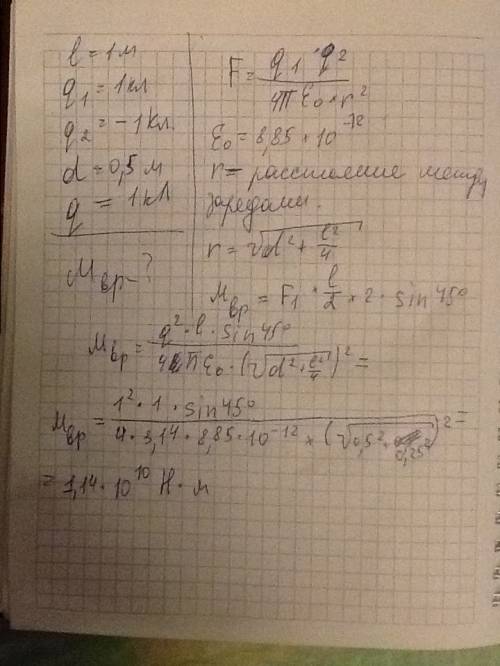 l = 1 м
q1 = 1 кл
q2 = - 1 Кл.
d = 0,5 м
q = 1 кл
Mвр - ?
F = q1 · q2 / 4π ε0 × r²
ε0 = 8,85 × 10⁻¹²
r = расстояние между
зарядами.
r = √(d² + l²/4)
Mвр = F1 × l/2 × 2 · sin 45°
Mвр = q² · l · sin 45° / 4 π ε0 · (√(d² + l²/4))² =
Mвр = 1² · 1 · sin 45° / 4 · 3,14 · 8,85 · 10⁻¹² × (√(0,5² + 0,25))² =
= 1,14 · 10¹⁰ Н · м